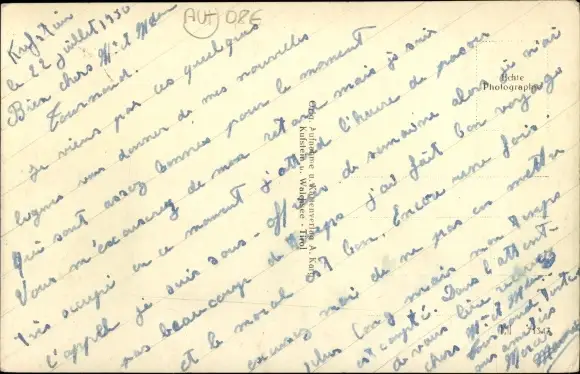 AUT 08E
Kufstein
le 22 juillet 1930
Bien chers Mr et Mme
Tournaud.
Je viens par ces quelques
lignes vous donner de mes nouvelles
qui sont assez bonnes pour le moment
Vous m'excuserez de mon retard mais je suis
très occupé en ce moment j'attends l'heure de passer
l'appel je suis sous-officier de semaine alors je n'ai
pas beaucoup de temps j'ai fait bon voyage
et le moral est bon. Encore une fois
excusez moi de ne pas en mettre
plus long mais mon temps
est compté. Dans l'attente
de vous lire recevez
chers Mr et Mme
Tournaud toutes
mes amitiés
Echte
Photographie
Orig. Aufnahme u. Verlag A. Karg
Kufstein u. Walchsee - Tirol